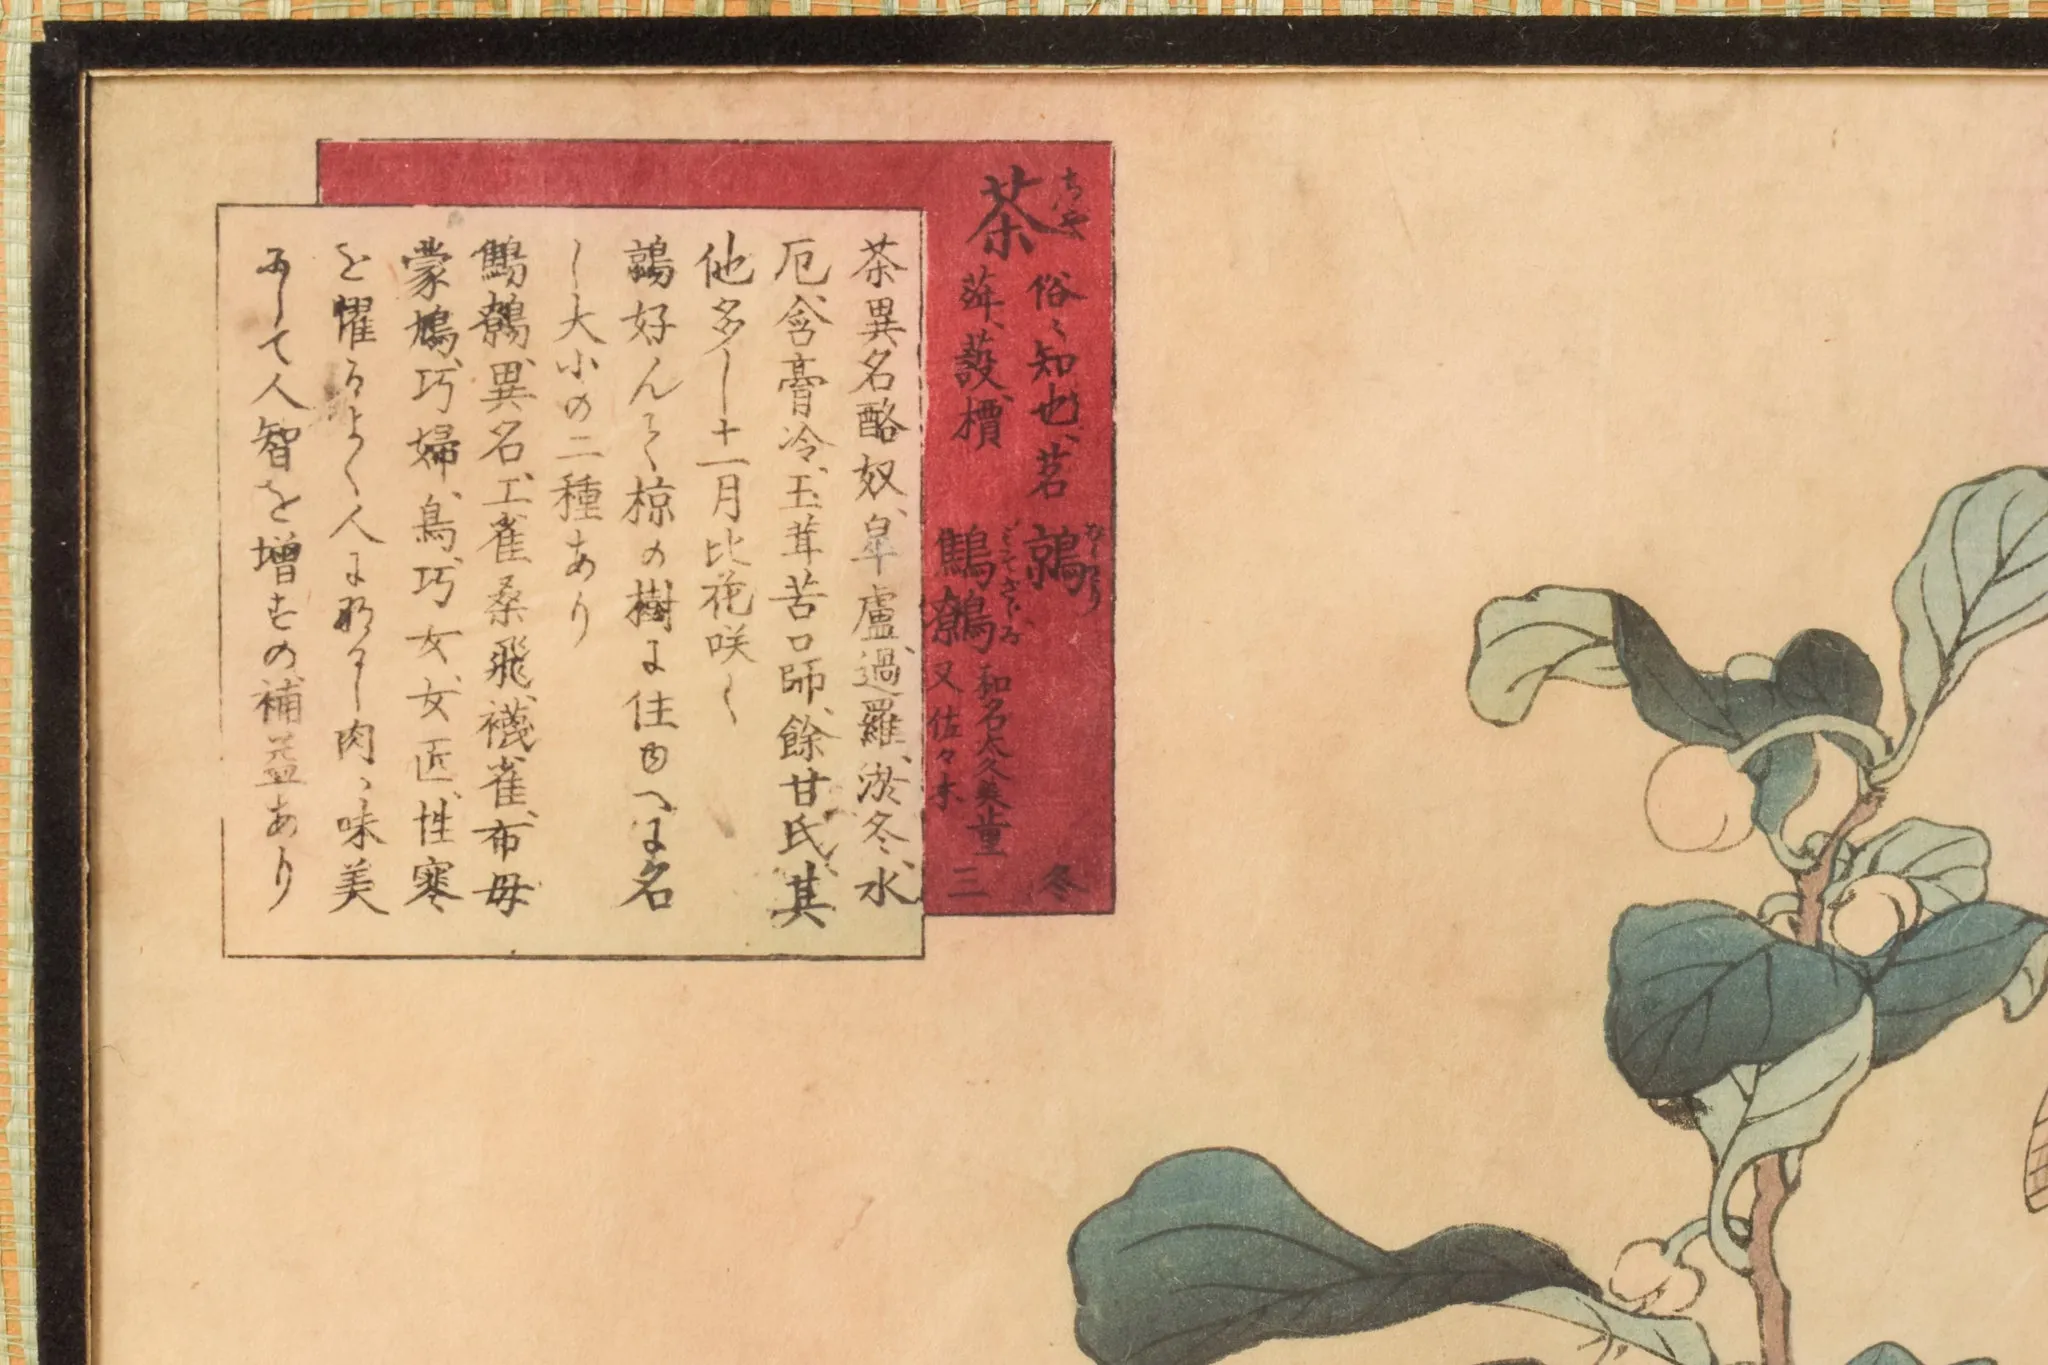 茶
俗ニ知也、茗
荈、蔎、檟
鶉
鷦鷯
和名
又佐々木
冬
三
茶異名酪奴、皐盧、過羅、游冬、水
厄、含膏冷、玉茸、苦口師、餘甘氏、其
他多し十一月比花咲く
鶉好んで椋の樹に住ゆへに名
し大小の二種あり
鷦鷯、異名、工雀、桑飛、襪雀、布母
蒙鳩、巧婦鳥、巧女、女匠、性寒
を懼るよく人に形し肉ハ味美
にして人智を増すの補益あり